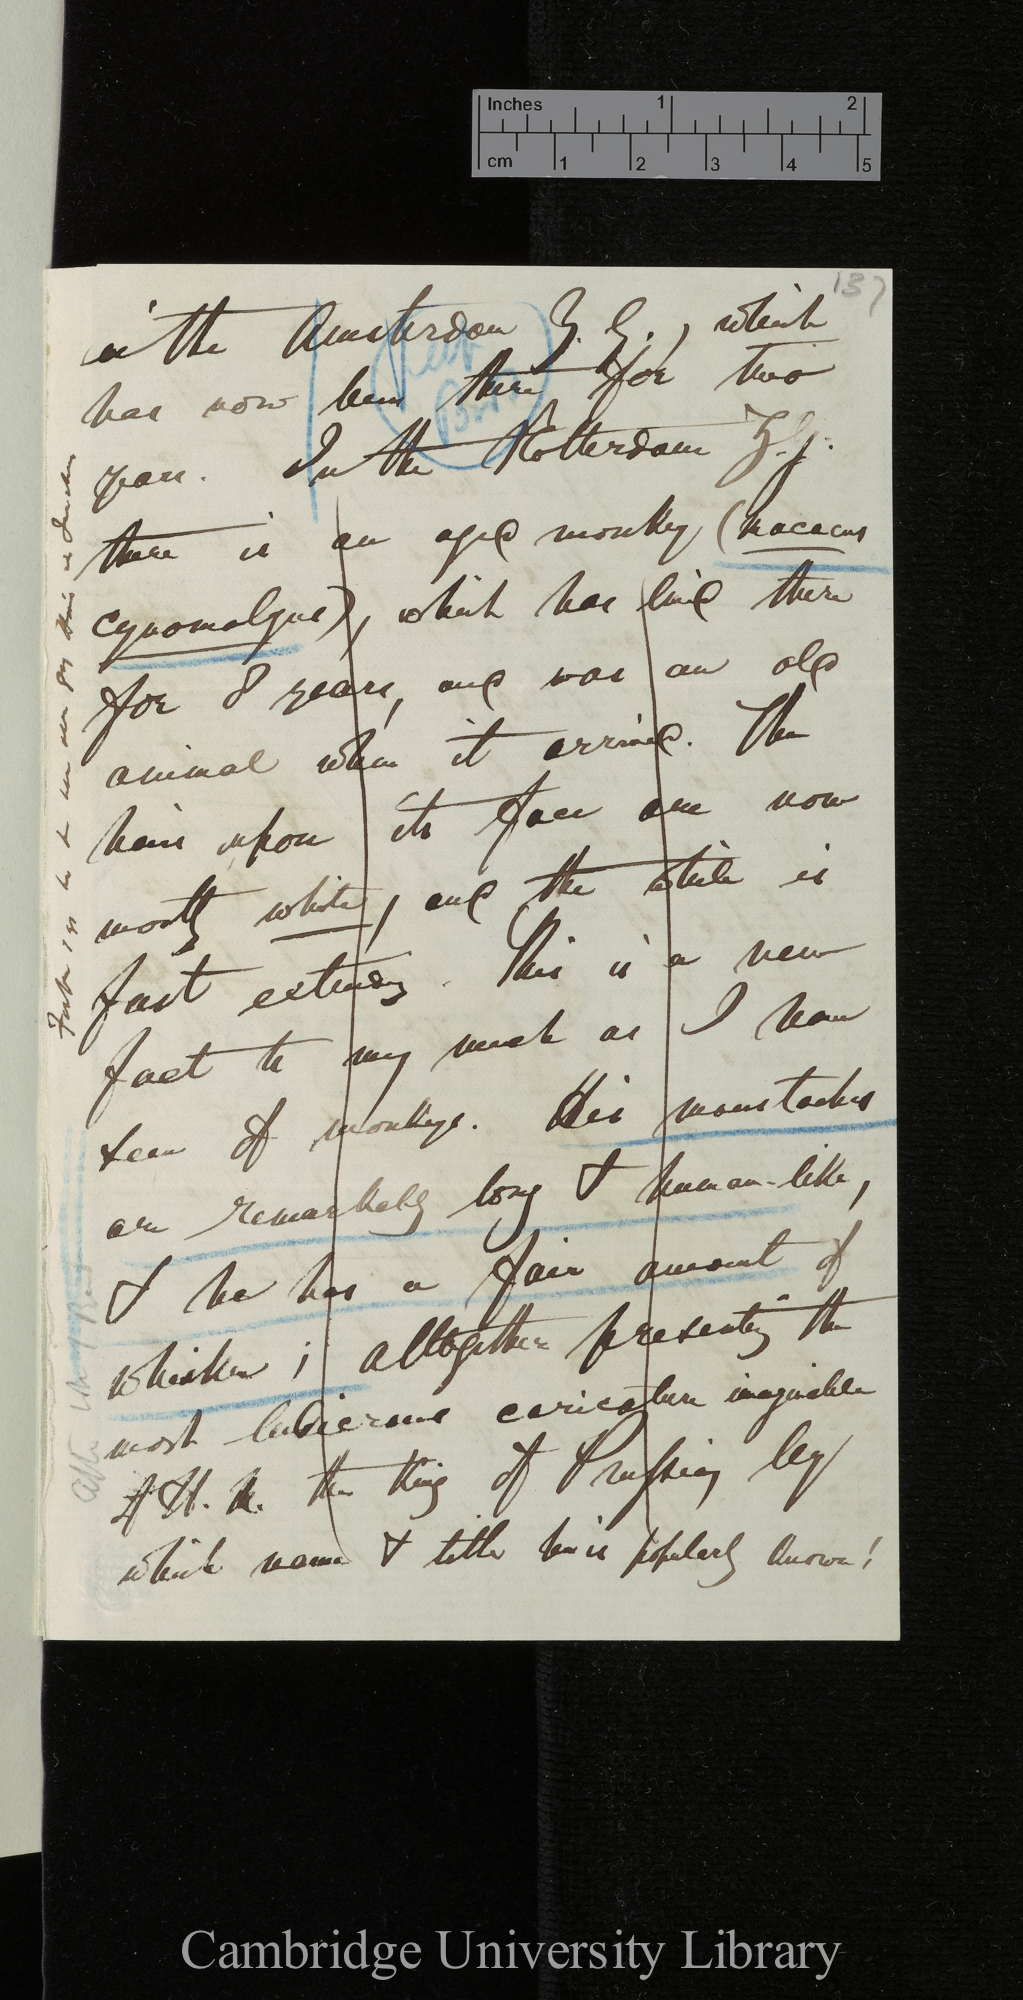 Inches 1 2
cm 1 2 3 4 5
137
in the Amsterdam Z. G., which
has now been there for two
years. In the Rotterdam Z. G.
there is an aged monkey (Macacus
cynomolgus), which has lived there
for 8 years, and was an old
animal when it arrived. The
hairs upon its face are now
mostly white, and the white is
fast extending. This is a new
fact to my mind as I have
seen of monkeys. His moustaches
are remarkably long & human-like,
& he has a fair amount of
whisker; altogether presenting the
most ludicrous caricature imaginable
of H. M. the King of Prussia, by
which name & title he is popularly known!
Keep
Cambridge University Library